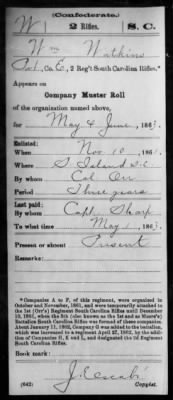 (Confederate.)
W 2 Rifles. S. C.
Wm Watkins
Pvt, Co. E, 2 Reg't South Carolina Rifles.*
Appears on
Company Muster Roll
of the organization named above,
for May & June, 186
Enlisted:
When Nov 10, 186
Where S. Island S.C.
By whom Col Orr
Period Three years
Last paid:
By whom Capt. Sharp
To what time May 1, 186
Present or absent Present
Remarks:
*Companies A to F, of this regiment, were organized in
October and November, 1861, and were temporarily attached to
the 1st (Orr's) Regiment South Carolina Rifles until December
10, 1861, when the 5th (also known as the 1st and as Moore's)
Battalion South Carolina Rifles was formed of these companies.
About January 11, 1862, Company G was added to the battalion,
which was increased to a regiment April 27, 1862, by the addi-
tion of Companies H, I and L, and designated the 2d Regiment
South Carolina Rifles.
Book mark:
(642)
Copyist.